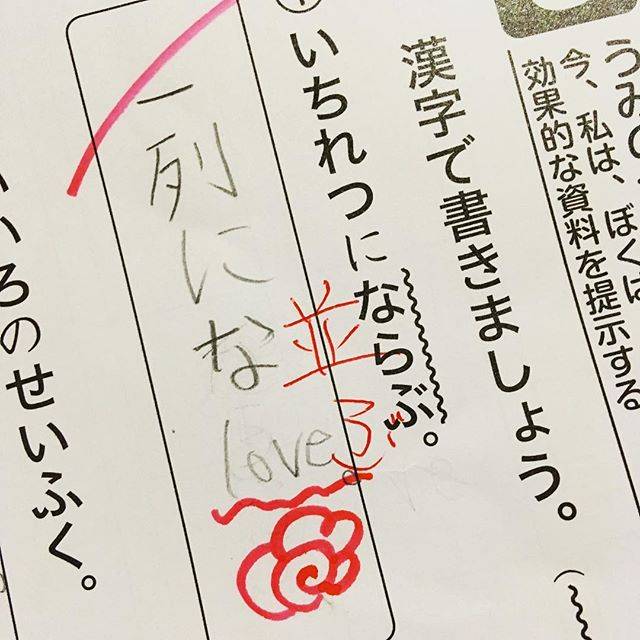 うみの
今、私は、ぼくは
効果的な資料を提示する
漢字で書きましょう。
いちれつにならぶ。
一列にな
love。
並ぶ
いろのせいふく。